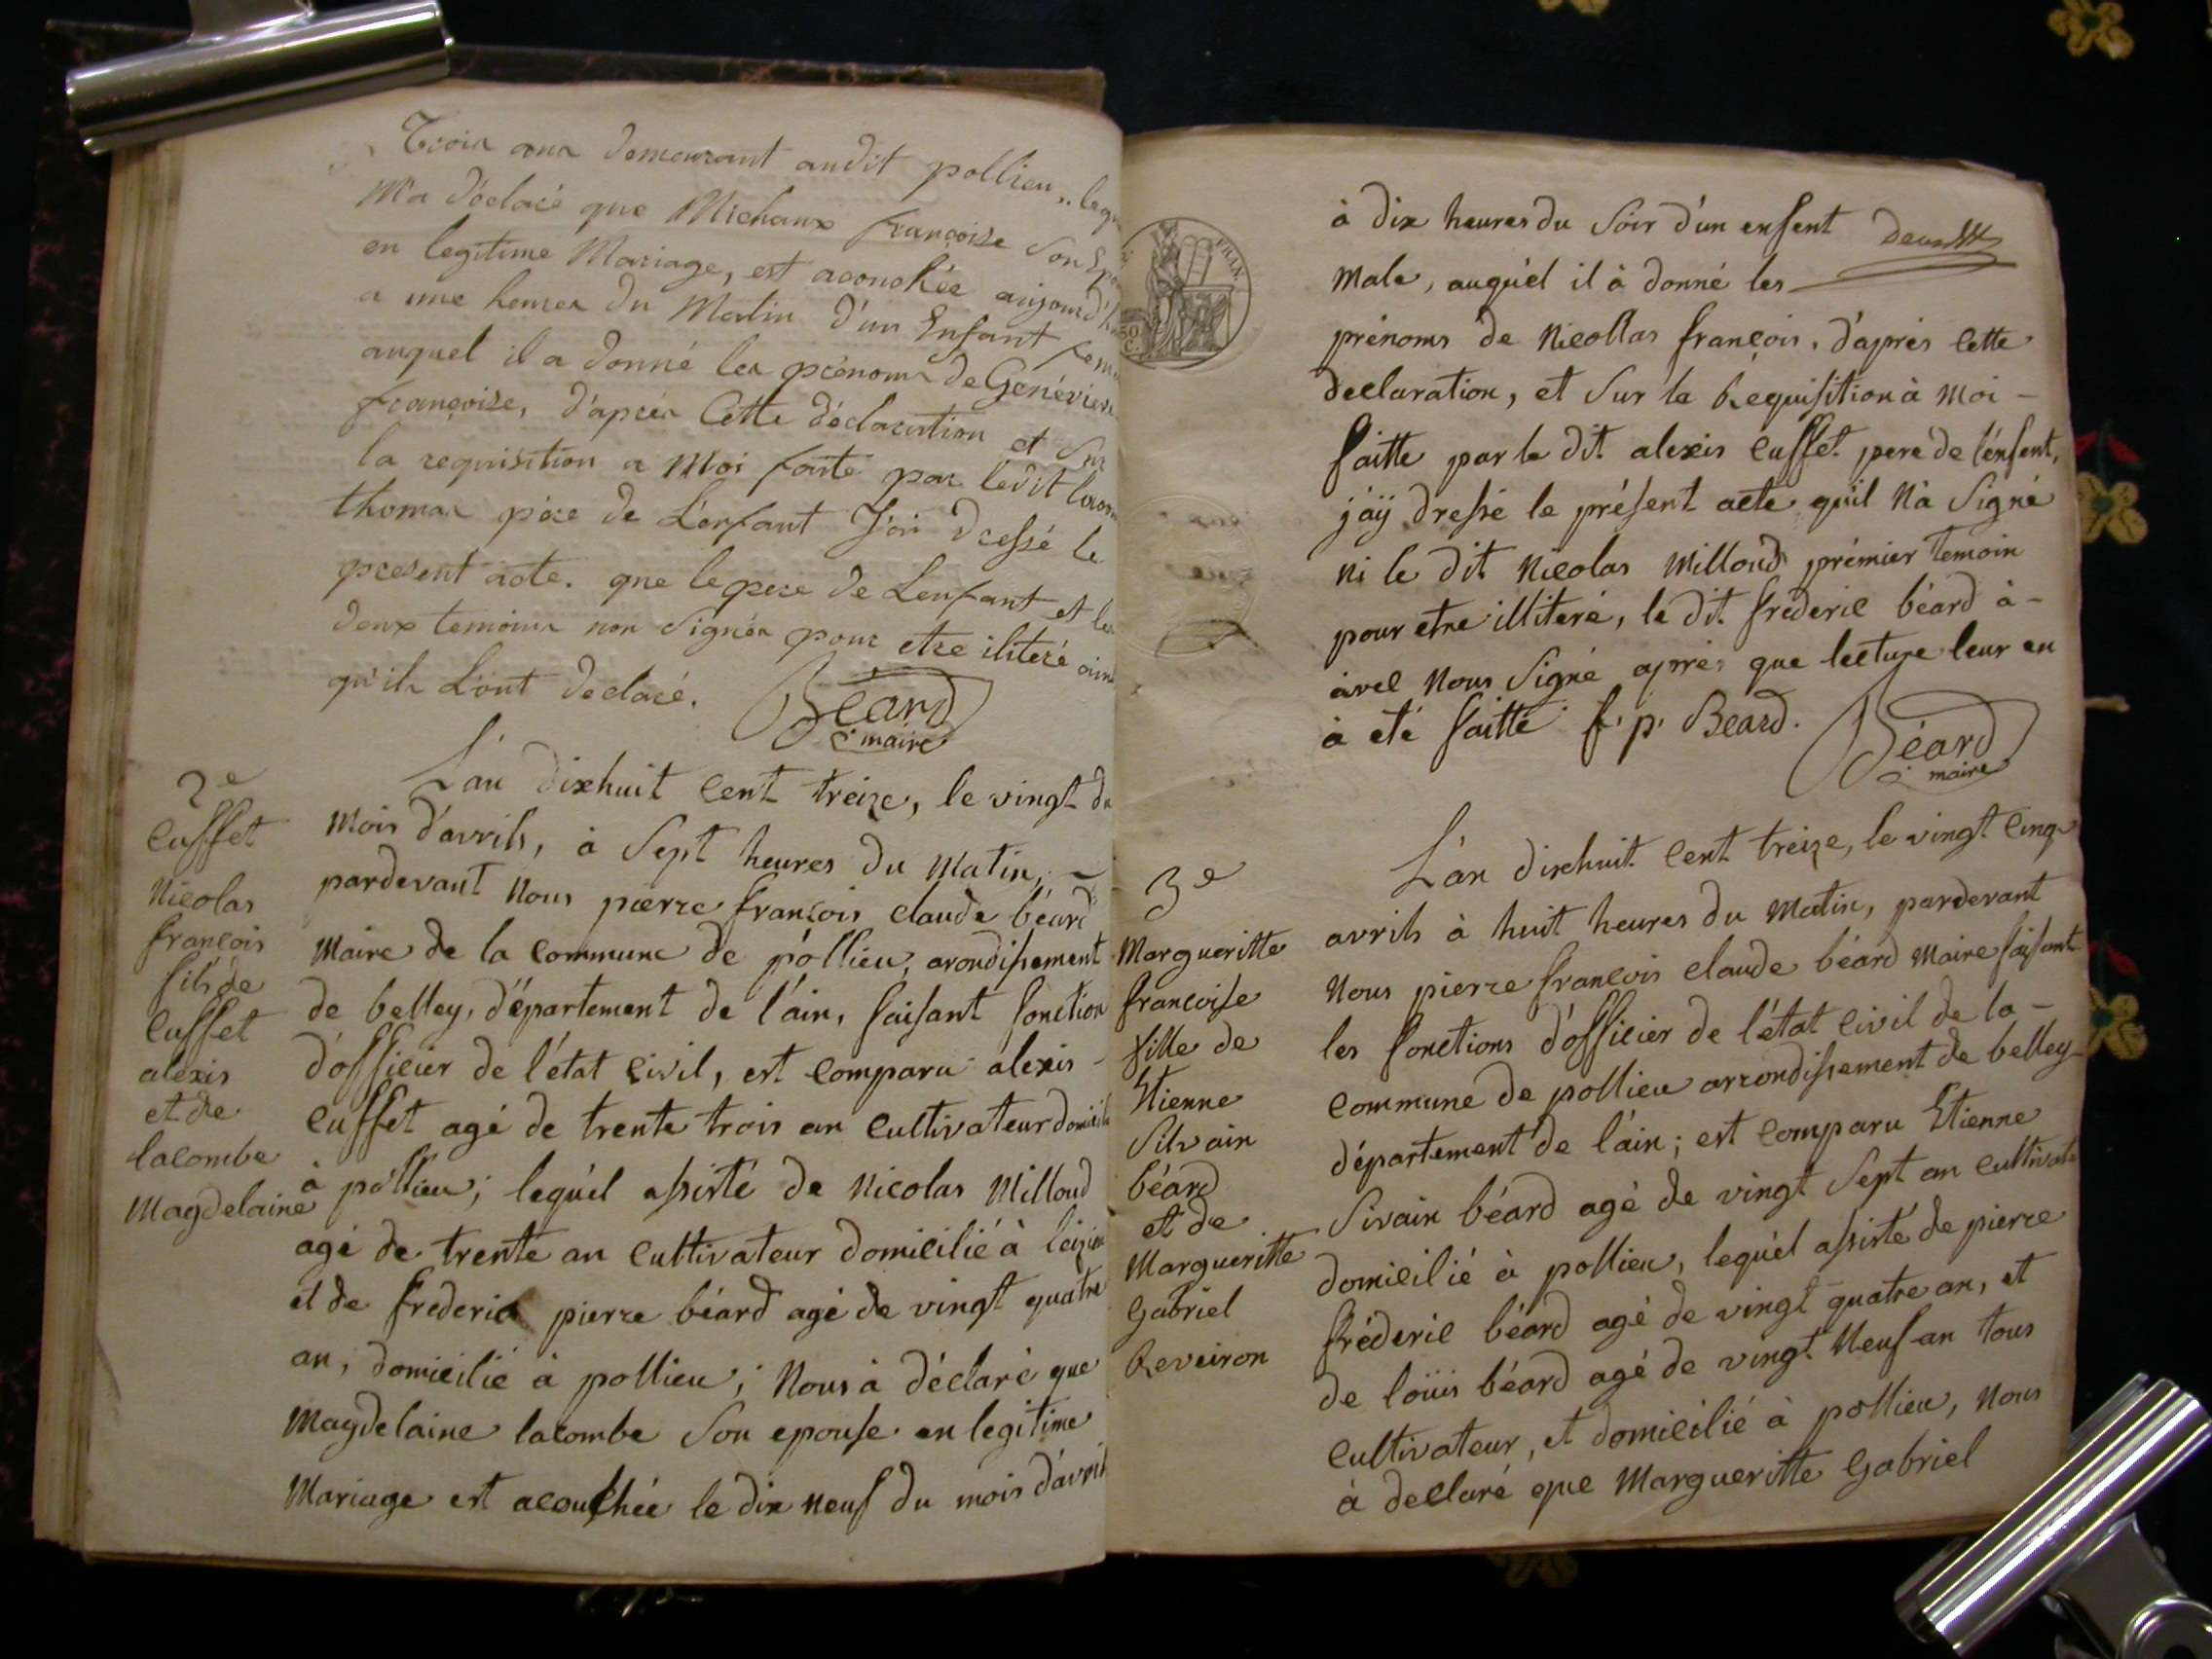 Trois ans demeurant audit pollieu, lequ
M'a déclaré que Michaux françoise Son Epo
en legitime Mariage, est acouchée aujourd'h
a une heures du Matin d'un Enfant fem
auquel il a donné les prénoms de Genéviev
françoise, d'aprés Cette déclaration et Sur
la requisition a Moi faite par ledit
thomas pére de L'enfant J'ai dressé le
present acte. que le pere de L'enfant et les
deux temoins non Signés pour etre iliteré ains
qu'ils L'ont declaré. Béard
maire
2e
Cuffet
Nicolas
francois
fils de
Cuffet
alexis
et de
lacombe
Magdelaine
L'an dixhuit Cent treize, le vingt du
Mois d'avrils, à Sept heures du Matin,
pardevant Nous pierre françois claude béard
Maire de la Commune de póllieu, arondissement
de belley, d'épartement de l'ain, faisant fonction
d'officier de l'état Civil, est Comparu alexis -
Cuffet agé de trente trois an Cultivateur domicili
à póllieu; lequél assisté de Nicolas Milloud
agé de trente an Cultivateur domicilié à
et de frederic pierre béard agé de vingt quatre
an, domicilié à pollieu; Nous à déclaré que
Magdelaine lacombe Son epouse en legitime
Mariage est acouchée le dix neuf du mois d'avril
FRAN.
à dix heures du Soir d'un enfent
Male, auquél il à donné les
prénoms de Nicollas françois, d'aprés Cette
declaration, et Sur la Requisition à Moi -
faitte par le dit alexis Cuffet pere de l'énfent,
j'aÿ dressé le présent acte qu'il N'à Signé
ni le dit Nicolas Milloud prémier temoin
pour etre illiteré, le dit frederic béard à -
avec Nous Signé aprés que lecture leur en
à eté faitte f. p. Beard. Béard
maire
3e
Margueritte
françoise
fille de
Etienne
Silvain
béard
et de
Margueritte
Gabriel
Reveiron
L'an dixhuit Cent treize, le vingt Cinq
avrils à huit heures du Matin, pardevant
Nous pierre françois claude béard Maire faisant
les fonctions d'officier de l'état Civil de la -
Commune de pollieu arrondissement de belley
département de l'ain; est Comparu Etienne
Sivain béard agé de vingt Sept an Cultivate
domicilié à pollieu, lequél assisté de pierre
fréderic béard agé de vingt quatre an, et
de loüis béard agé de vingt Neuf an tous
Cultivateur, et domicilié à pollieu, Nous
à declaré que Margueritte Gabriel